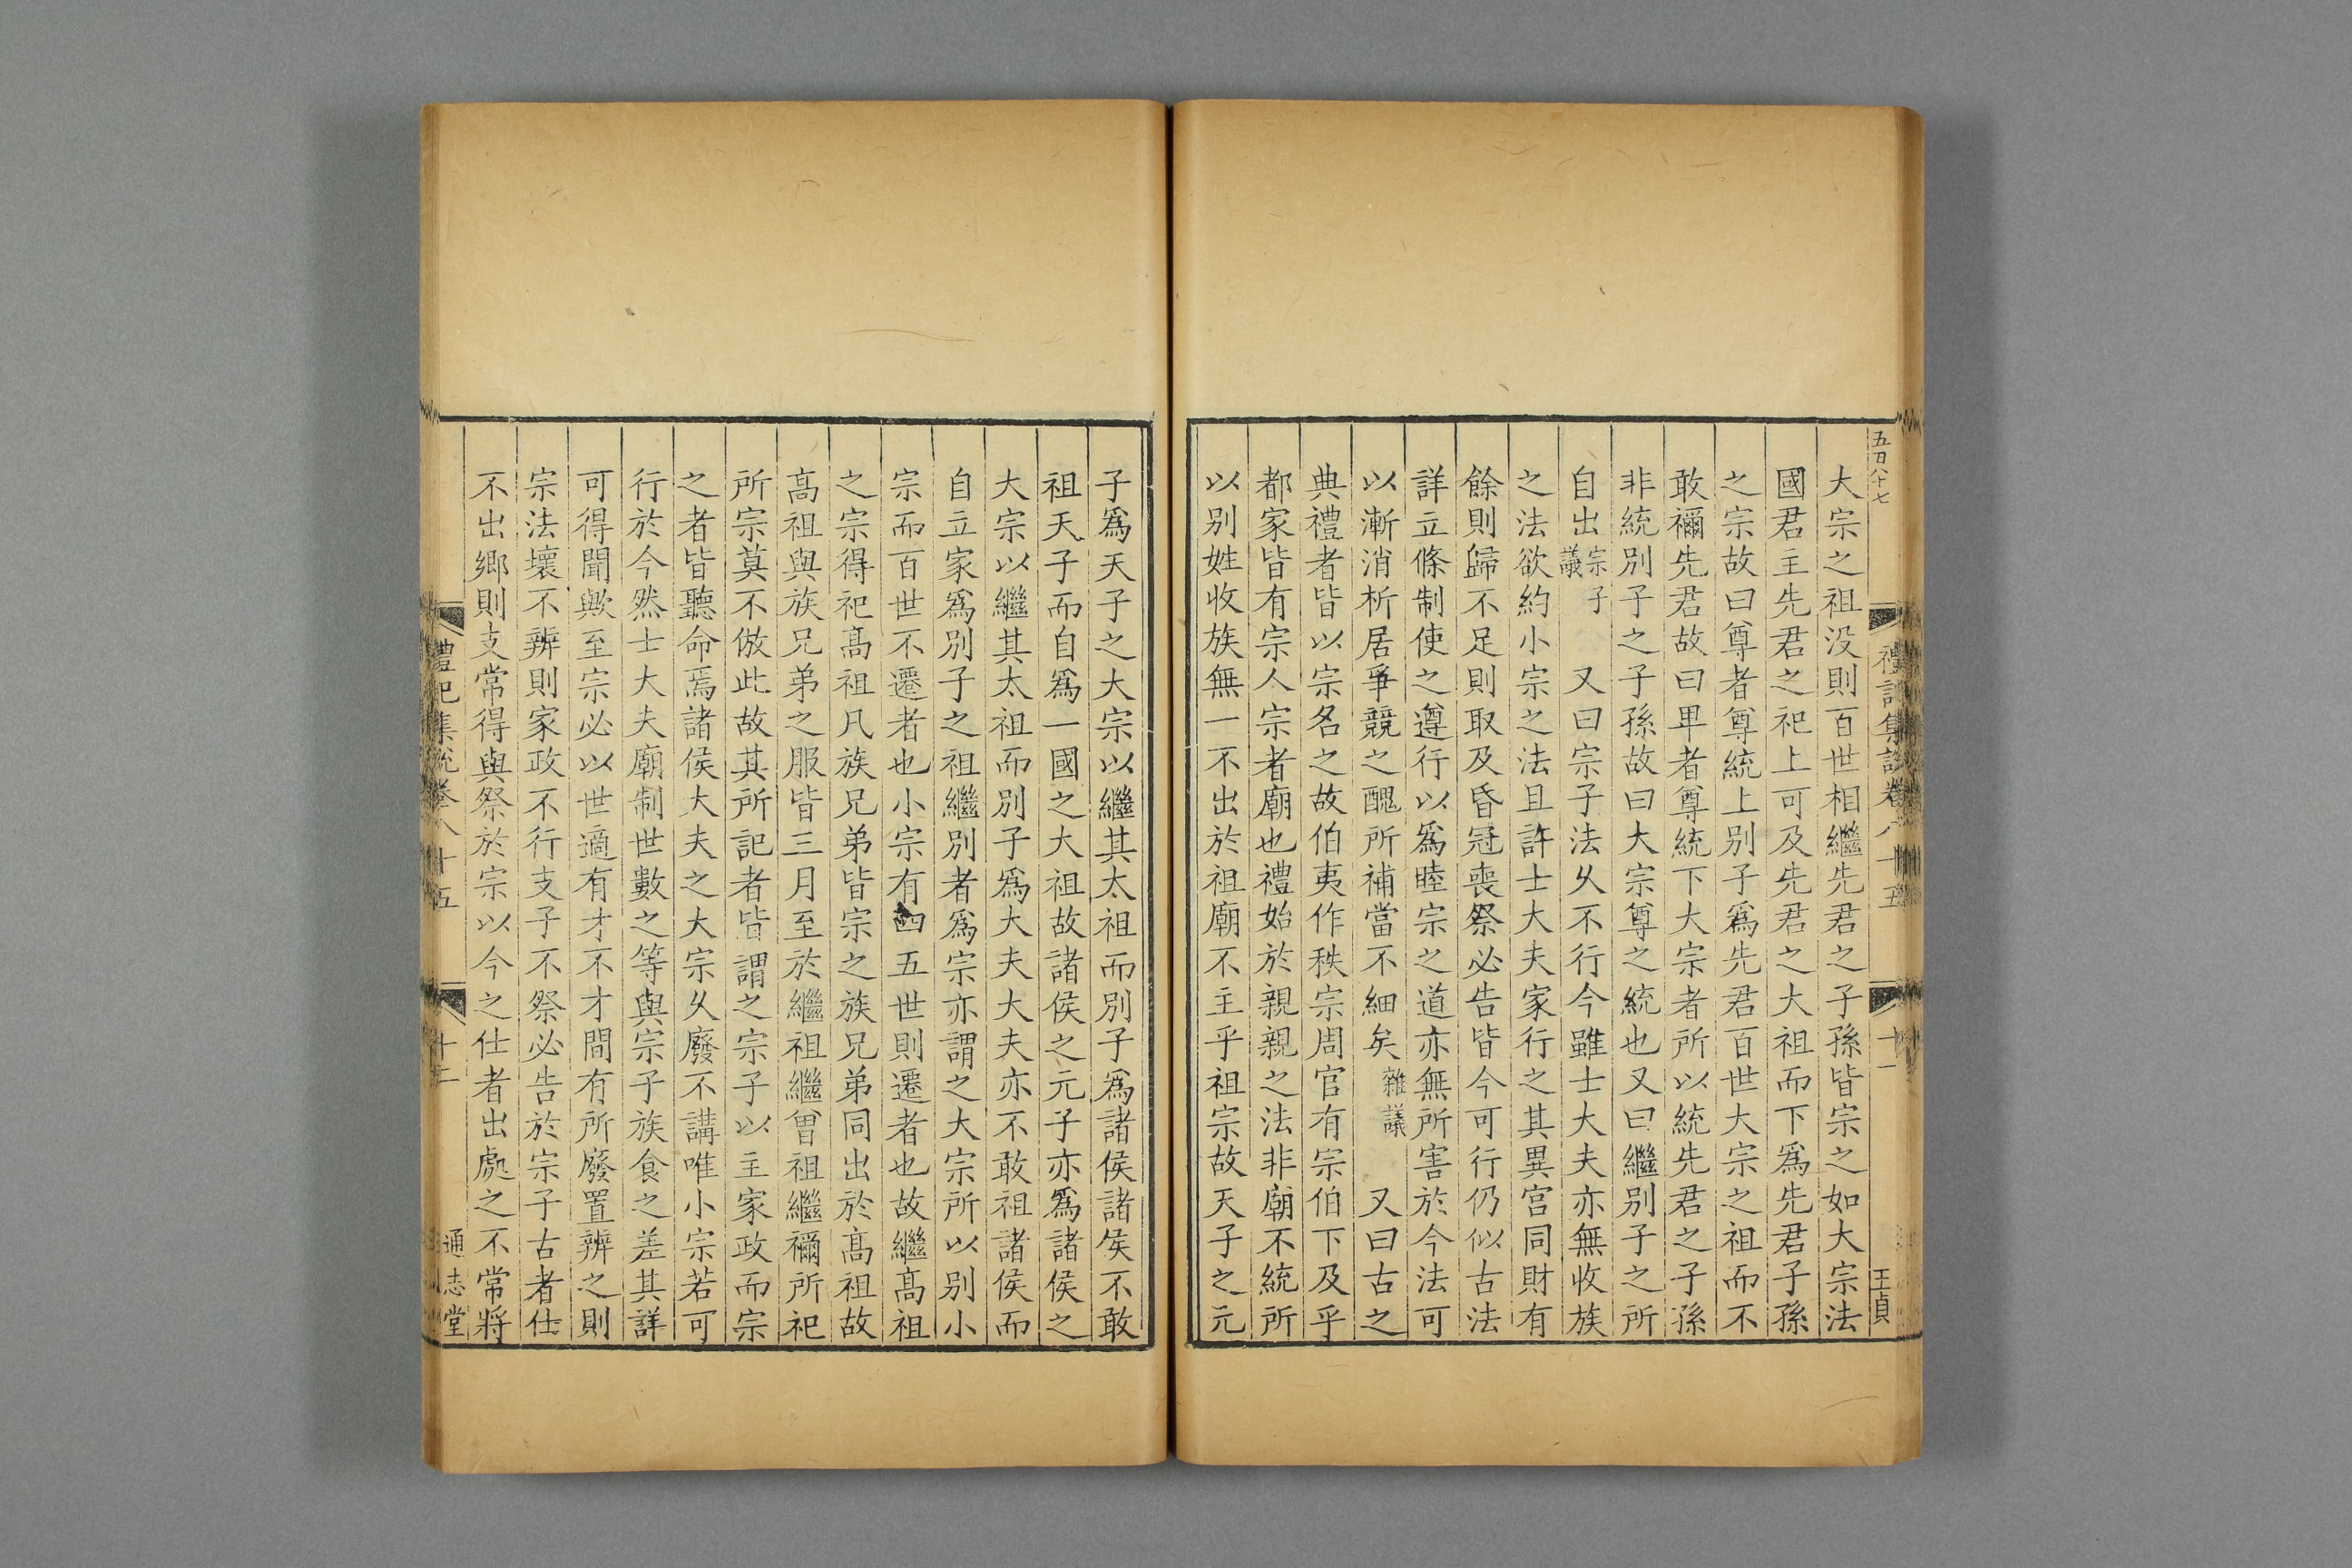 五百八十七
禮記集說卷八十五
十一
王貞
大宗之祖没則百世相繼先君之子孫皆宗之如大宗法
國君主先君之祀上可及先君之大祖而下爲先君子孫
之宗故曰尊者尊統上别子爲先君百世大宗之祖而不
敢禰先君故曰卑者尊統下大宗者所以統先君之子孫
非統别子之子孫故曰大宗尊之統也又曰繼别子之所
自出宗子議又曰宗子法乆不行今雖士大夫亦無收族
之法欲約小宗之法且許士大夫家行之其異宫同財有
餘則歸不足則取及昏冠喪祭必告皆今可行仍似古法
詳立條制使之遵行以爲睦宗之道亦無所害於今法可
以漸消析居爭競之醜所補當不細矣雜議又曰古之
典禮者皆以宗名之故伯夷作秩宗周官有宗伯下及乎
都家皆有宗人宗者廟也禮始於親親之法非廟不統所
以别姓收族無一不出於祖廟不主乎祖宗故天子之元
子爲天子之大宗以繼其太祖而别子爲諸侯諸侯不敢
祖天子而自爲一國之大祖故諸侯之元子亦爲諸侯之
大宗以繼其太祖而别子爲大夫大夫亦不敢祖諸侯而
自立家爲别子之祖繼别者爲宗亦謂之大宗所以别小
宗而百世不遷者也小宗有四五世則遷者也故繼髙祖
之宗得祀髙祖凡族兄弟皆宗之族兄弟同出於髙祖故
髙祖與族兄弟之服皆三月至於繼祖繼曾祖繼禰所祀
所宗莫不倣此故其所記者皆謂之宗子以主家政而宗
之者皆聽命焉諸侯大夫之大宗乆廢不講唯小宗若可
行於今然士大夫廟制世數之等與宗子族食之差其詳
可得聞歟至宗必以世適有才不才間有所廢置辨之則
宗法壞不辨則家政不行支子不祭必告於宗子古者仕
不出鄉則支常得與祭於宗以今之仕者出處之不常將
禮記集說卷八十五
十二
通志堂